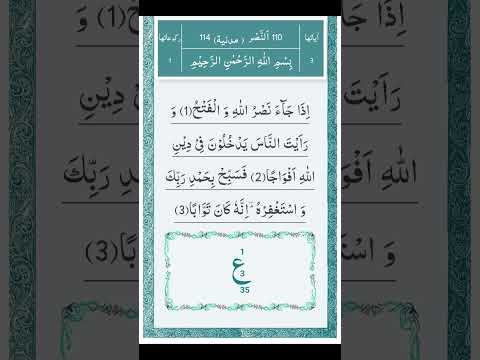 آیاتها 110 اَلنَّصْر ( مدنیة) 114 رکوعاتها
3 بِسْمِ اللهِ الرَّحْمٰنِ الرَّحِيْمِ 1
اِذَا جَآءَ نَصْرُ اللهِ وَ الْفَتْحُ(1) وَ
رَاَيْتَ النَّاسَ يَدْخُلُوْنَ فِيْ دِيْنِ
اللهِ اَفْوَاجًا(2) فَسَبِّحْ بِحَمْدِ رَبِّكَ
وَ اسْتَغْفِرْهُ ۚ اِنَّهٗ كَانَ تَوَّابًا(3)
1
ع
3
35